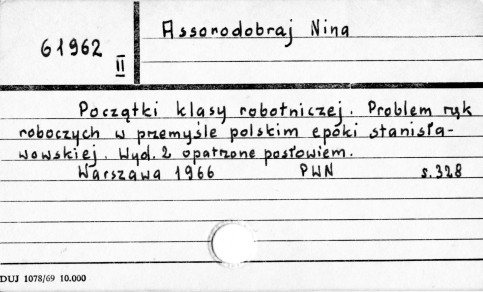 61962
II
Assorodobraj Nina
Początki klasy robotniczej. Problem rąk
roboczych w przemyśle polskim epoki stanisła-
wowskiej. Wyd. 2 opatrzone posłowiem.
Warszawa 1966 PWN s. 328
DUJ 1078/69 10.000